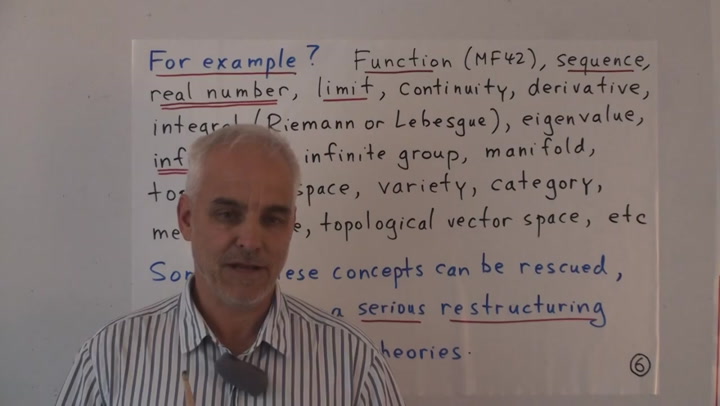 For example? Function (MF42), sequence,
real number, limit, continuity, derivative,
(Riemann or Lebesgue), eigenvalue,
infinite group, manifold,
space, variety, category,
topological vector space, etc
concepts can be rescued,
a serious restructuring
6